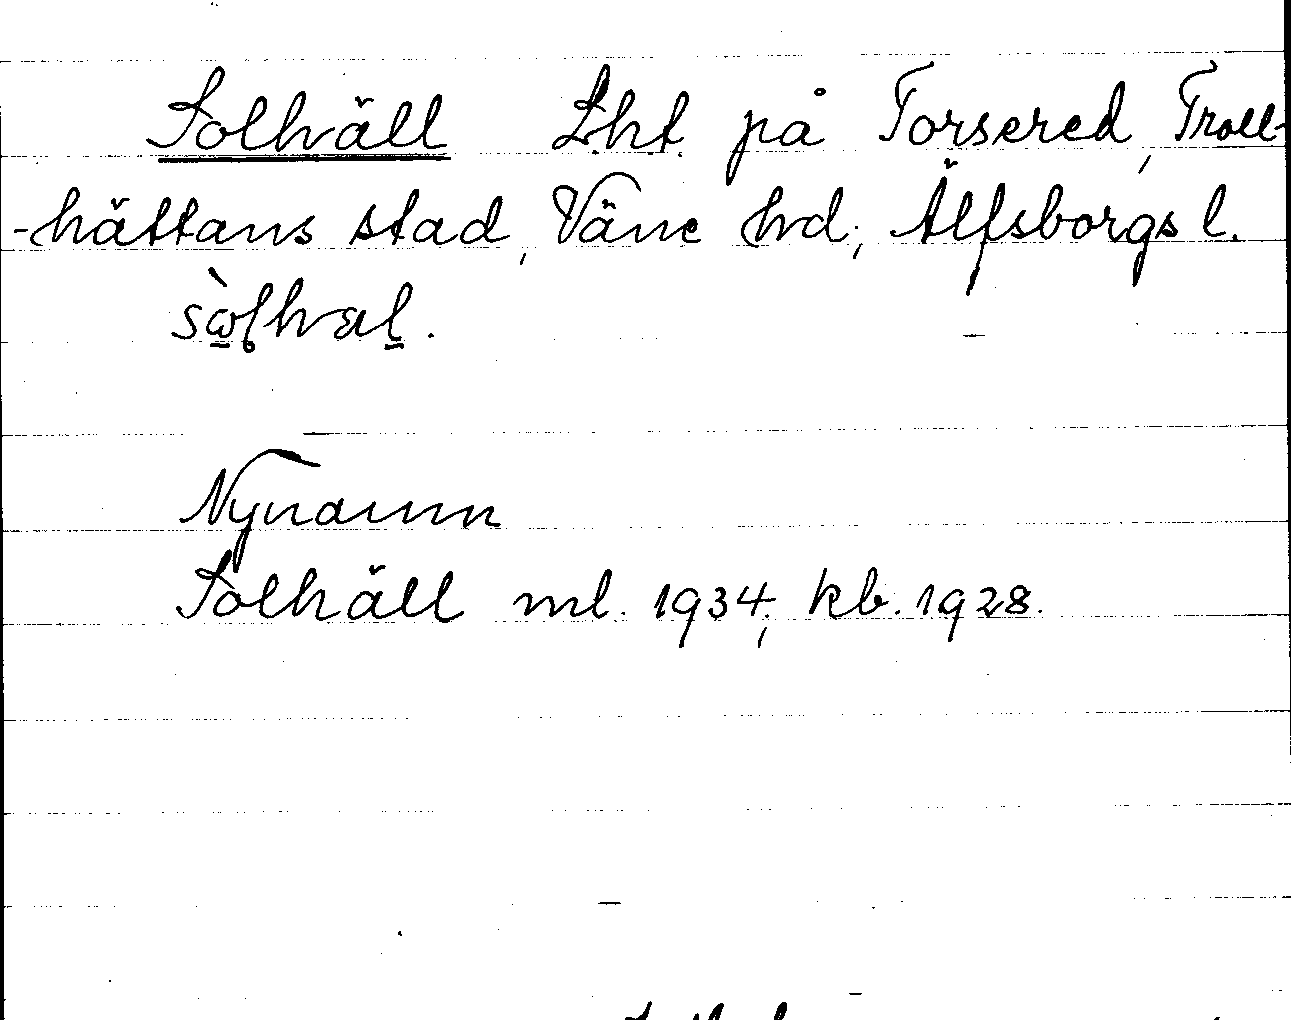 Solhäll Lht. på Torsered, Troll-
-hättans stad, Väne hd; Älfsborgs l.
Nynamn
Solhäll ml. 1934; kb. 1928.